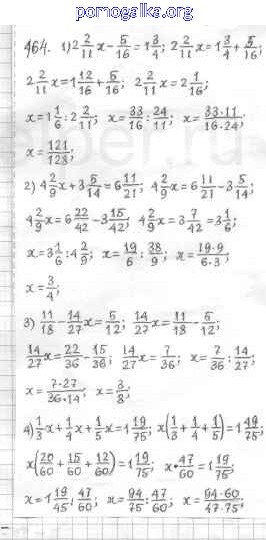 pomogalka.org
464. 1) 2 2/11 x - 5/16 = 1 3/4; 2 2/11 x = 1 3/4 + 5/16;
2 2/11 x = 1 12/16 + 5/16; 2 2/11 x = 2 1/16;
x = 1 1/6 : 2 2/11; x = 33/16 : 24/11; x = 33·11/16·24;
x = 121/128;
2) 4 2/9 x + 3 5/14 = 6 11/21; 4 2/9 x = 6 11/21 - 3 5/14;
4 2/9 x = 6 22/42 - 3 15/42; 4 2/9 x = 3 7/42 = 3 1/6;
x = 3 1/6 : 4 2/9; x = 19/6 : 38/9; x = 19·9/6·3;
x = 3/4;
3) 11/18 - 14/27 x = 5/12; 14/27 x = 11/18 - 5/12;
14/27 x = 22/36 - 15/36; 14/27 x = 7/36; x = 7/36 : 14/27;
x = 7·27/36·14; x = 3/8;
4) 1/3 x + 1/4 x + 1/5 x = 1 19/75; x(1/3 + 1/4 + 1/5) = 1 19/75;
x(20/60 + 15/60 + 12/60) = 1 19/75; x·47/60 = 1 19/75;
x = 1 19/45 : 47/60; x = 94/75 : 47/60; x = 94·60/47·75;